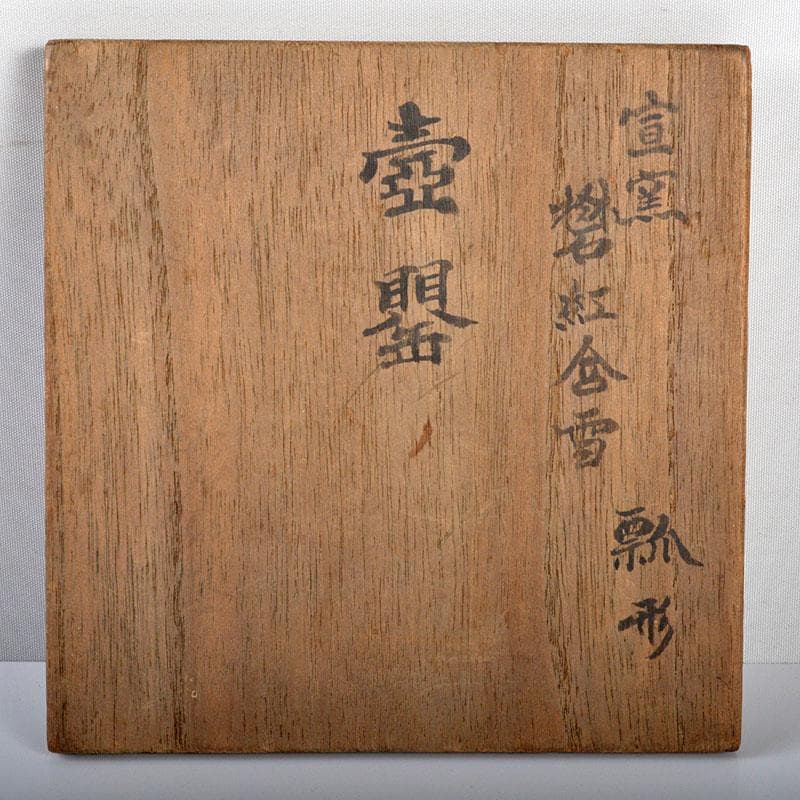 宣窯
礬紅含雪
瓢形
壺罌